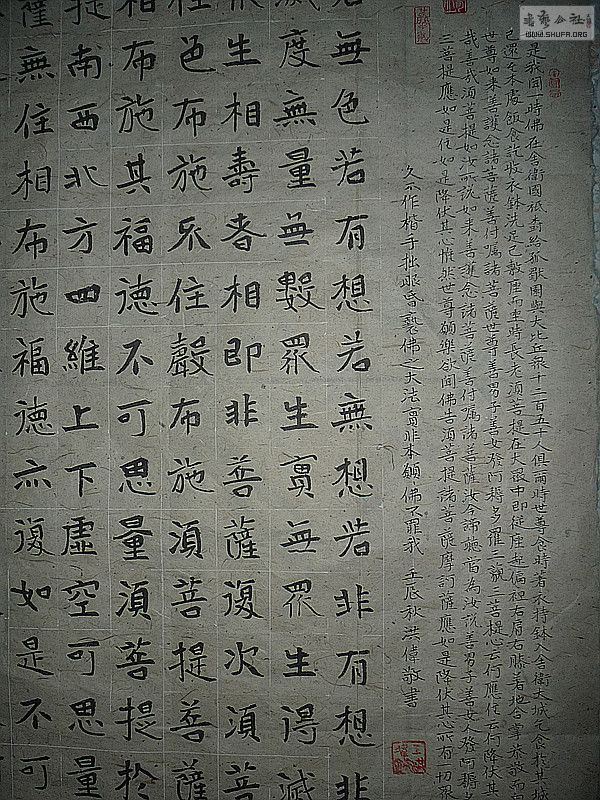 是我聞一時佛在舍衛國祇樹給孤獨園與大比丘眾千二百五十人俱爾時世尊食時著衣持鉢入舍衛大城乞食於其城
已還至本處飯食訖收衣鉢洗足已敷座而坐時長老須菩提在大眾中即從座起偏袒右肩右膝著地合掌恭敬而
世尊如來善護念諸菩薩善付囑諸菩薩世尊善男子善女發阿耨多羅三藐三菩提心云何應住云何降伏其
哉善哉須菩提如汝所說如來善護念諸菩薩善付囑諸菩薩汝今諦聽當為汝說善男子善女發阿耨
三菩提應如是住如是降伏其心惟然世尊願樂欲聞佛告須菩提諸菩薩摩訶薩應如是降伏其心所有一切眾
久不作楷手拙眼昏褻佛之大法實非本願佛不罪我 壬辰秋洪偉敬書
若無色若有想若無想若非有想非
度無量無數眾生實無眾生得滅
生相壽者相即非菩薩復次須菩
住色布施不住聲布施須菩提菩
相布施其福德不可思量須菩提於
提南西北方四維上下虛空可思量
薩無住相布施福德亦復如是不可
書藝公社
WWW.SHUFA.ORG